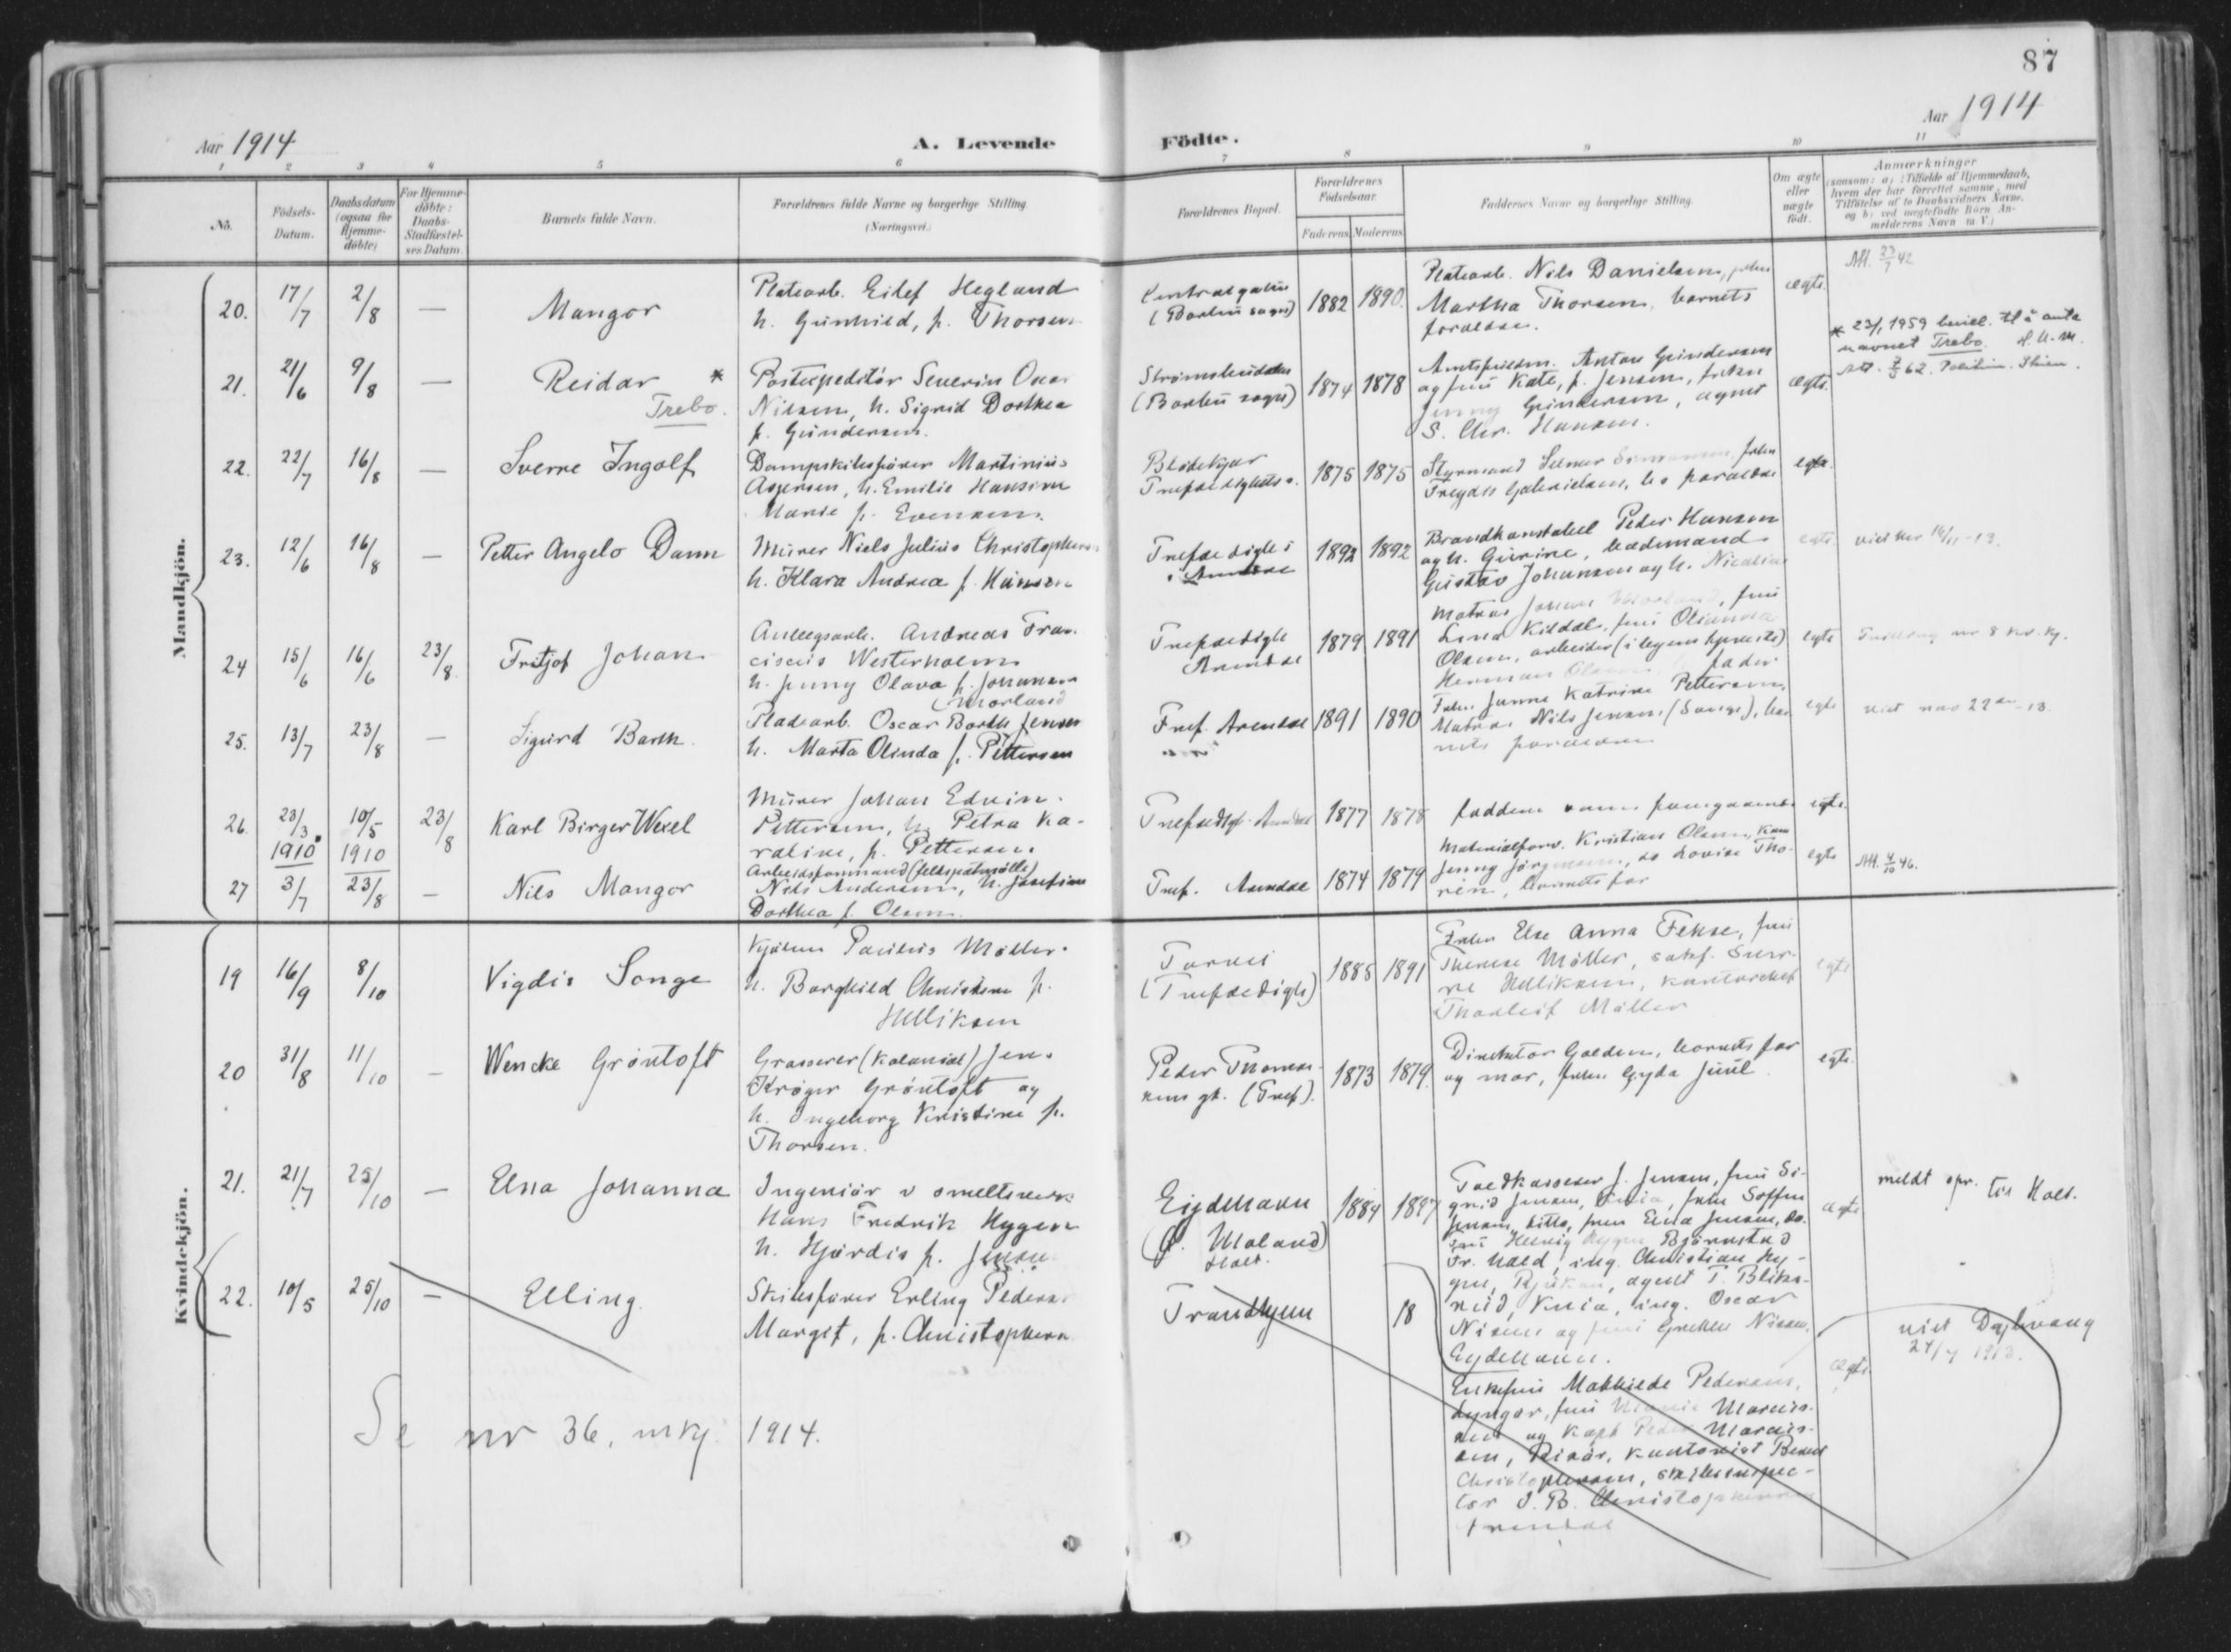 87
Aar 1914
A. Levende
Födte.
Aar 1914
1 2 3 4 5 6 7 8 9 10 11
No.
Födsels-
Datum.
Daabsdatum
(ogsaa for
Hjemme-
döbte)
For Hjemme-
döbte:
Daabs-
Stadfæstel-
ses Datum.
Barnets fulde Navn.
Forældrenes fulde Navne og borgerlige Stilling
(Næringsvei.)
Forældrenes Bopæl.
Forældrenes
Födselsaar.
Faderens. Moderens.
Faddernes Navne og borgerlige Stilling.
Om ægte
eller
uægte
födt.
Anmærkninger
(saasom: a) i Tilfælde af Hjemmedaab,
hvem der har forrettet samme, med
Tilföielse af to Daabsvidners Navne,
og b) ved uægtefödte Börn An-
melderens Navn m. V.)
Mandkjön.
20. 17/7 2/8 —
Mangor
Platearb. Eilef Hegland
h. Gunhild, f. Thorsen
(Barbu sogn)
1882 1890.
Platearb. Nils Danielsen,
Martha Thorsen, barnets
forældre.
ægte.
Att. 23/7 42
21. 21/6 9/8 —
Reidar *
Trebo.
Postexpeditör Severin Oscar
Nilsen, h. Sigrid Dorthea
f. Gundersen.
(Barbu sogn)
1874 1878
Anton Gundersen
og frue Kate, f. Jensen, frøken
Jenny Gundersen, agent
S. Chr. Hansen.
ægte.
* 23/1 1959 bevil. til å anta
navnet Trebo.
22. 22/7 16/8 —
Sverre Ingolf
Dampskibsfører Martinius
Aspersen, h. Emilie Hansine
Marie f. Evensen.
1875 1875
Styrmand Selmer
Gabrielsen, bs forældre
egte.
23. 12/6 16/8 —
Petter Angelo Dann
Murer Niels Julius Christophersen
h. Klara Andrea f. Hansen
Trefoldigh i
Arendal
1892 1892
Brandkonstabel Peder Hansen
og h. Gurine,
Gustav Johansen og h. Nicoline
egte.
24 15/6 16/6 23/8.
Fritjof Johan
Anlægsarb. Andreas Fran-
ciscus Westerholm
h. Jenny Olava f. Johannesen
(Morland)
Trefoldigh
Arendal
1879 1891
Matros Johan Morland, frue
Lina Kildal, frue Olianna
Olsen, arbeider
Herman Olsen fader
egte
25. 13/7 23/8 —
Sigurd Barth.
Pladearb. Oscar Barth Jensen
h. Marta Olinda f. Pettersen
Tref. Arendal
1891 1890
Frøken Janna Katrine Pettersen,
Matros Nils Jensen (Songe), bar-
nets forældre
egte
26. 23/3 1910 10/5 1910 23/8
Karl Birger Wexel
Murer Johan Edvin
Pettersen, h. Petra Ka-
roline, f. Pettersen.
Trefoldigh. Arendal
1877 1878
egte.
27 3/7 23/8 —
Nils Mangor
Arbeidsformand (feltspatmølle)
Nils Andersen, h. Josefine
Dorthea f. Olsen.
Tref. Arendal
1874 1879
Materialforv. Kristian Olsen,
Jenny Jörgensen, do Lovise Tho-
rin, barnets far
egte
Att. 4/10 46.
Kvindekjön.
19 16/9 8/10
Vigdis Songe
Møller.
h. Borghild Christine f.
Ulliksen
Torvei
(Trefoldigh)
1885 1891
Frøken Else Anna Fehse, frue
Therese Möller, Sver-
re Ulliksen, kontorchef
Thorleif Möller
egte
20 31/8 11/10 —
Wencke Gröntoft
Grosserer (Kolonial) Jens
Kröger Gröntoft og
h. Ingeborg Kristine f.
Thorsen.
Peder Thomas-
sens gt. (Tref).
1873 1879.
Direktør Galden, barnets far
og mor, frøken Gyda Juul
egte.
21. 21/7 25/10 —
Elna Johanna
Ingeniör v smelteverk
Hans Fredrik Hygen
h. Hjördis f. Jensen
Eydehavn
(Ö. Moland)
Holt.
1884 1897
Toldkasserer J. Jensen, frue Si-
grid Jensen, frøken Soffen
Jensen, ditto, frøken Elna Jensen, do.
frue Hennig Hygen Björnstad
Fr. hald, ing. Christian Hy-
gen, Rjukan, agent T. Bliks-
rud, Kria, ing. Oscar
Nissen og frue Grethe Nissen,
Eydehavn.
ægte
meldt spr. til Holt.
22. 10/5 25/10 —
Elling
Skibsfører Erling Pedersen
Margit, f. Christophersen
Trondhjem
18
Enkefrue Mathilde Pedersen,
Lyngør, frue Marie Marcus-
sen og Kapt. Peder Marcus-
sen, Risör, kontorist Bernt
Christophersen, skibsinspec-
tor J. B. Christophersen
Arendal
ægte.
viet Dybvaag
24/7 1913.
Se nr 36, mkj. 1914.